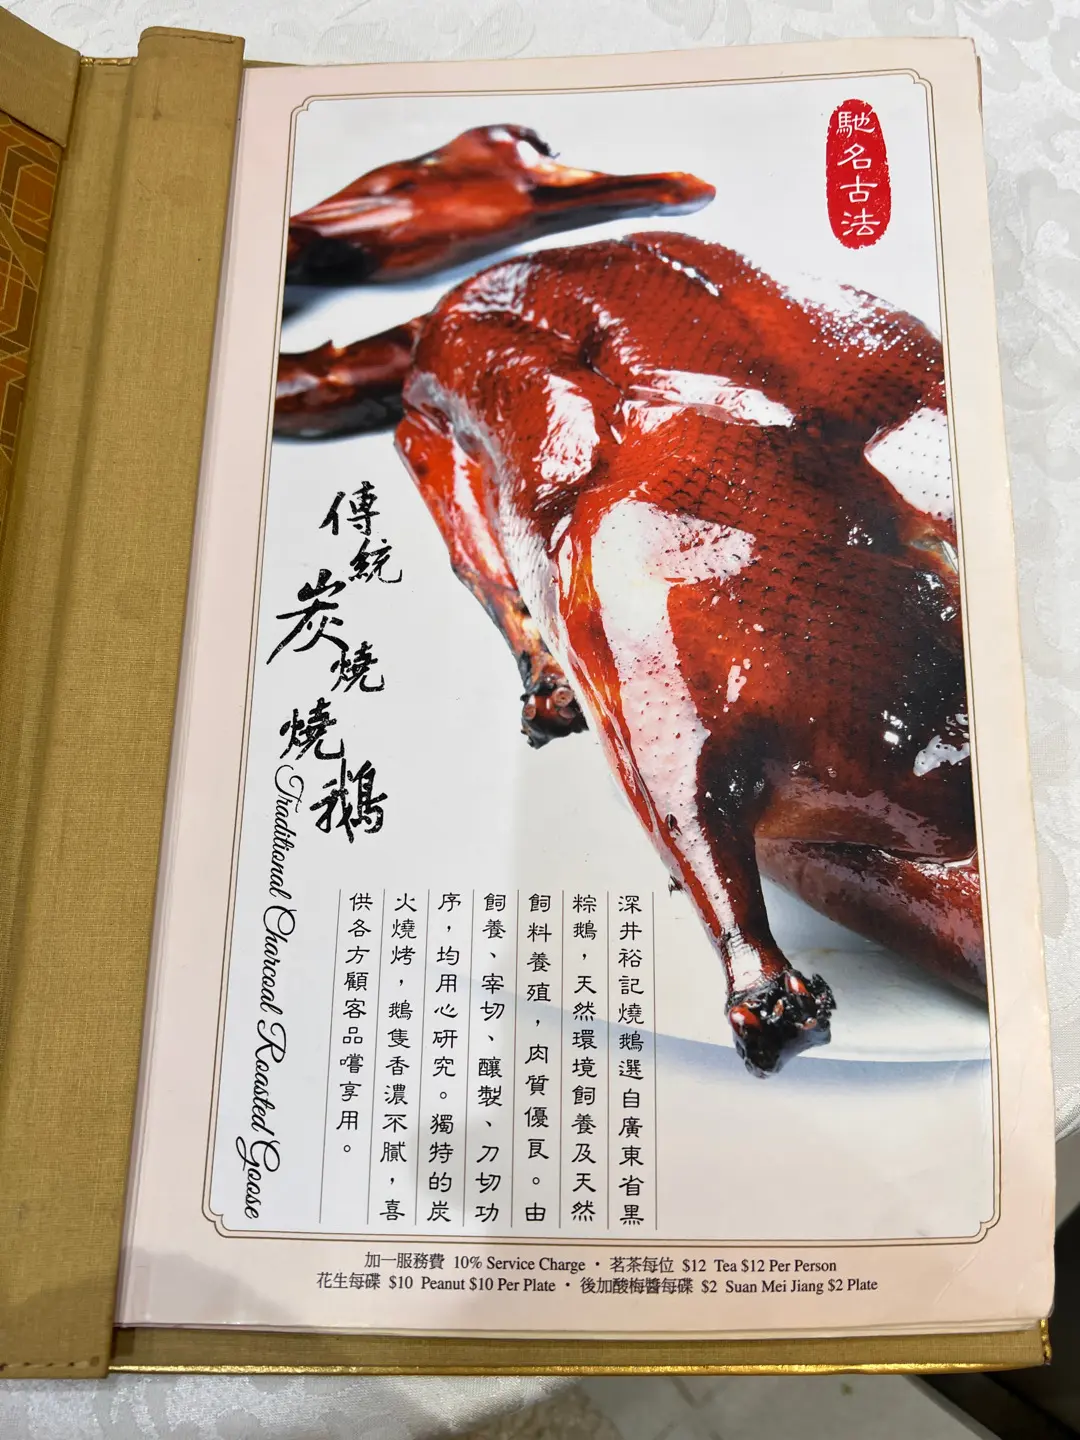 馳名古法
傳統
炭燒
燒鵝
Traditional Charcoal Roasted Goose
深井裕記燒鵝選自廣東省黑
粽鵝，天然環境飼養及天然
飼料養殖，肉質優良。由
飼養、宰切、釀製、刀切功
序，均用心研究。獨特的炭
火燒烤，鵝隻香濃不膩，喜
供各方顧客品嚐享用。
加一服務費 10% Service Charge · 茗茶每位 $12 Tea $12 Per Person
花生每碟 $10 Peanut $10 Per Plate · 後加酸梅醬每碟 $2 Suan Mei Jiang $2 Plate